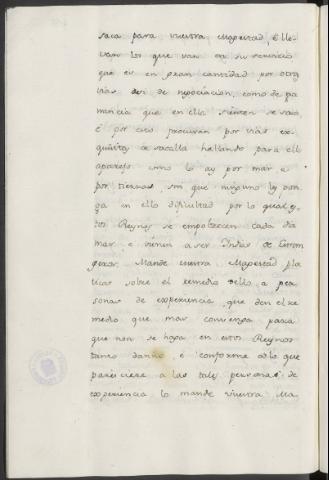 saca para vuestra Magestad, é lle-
van los que van en su servicio
que es en gran cantidad por otras
vias de negociacion, como de ga
nancia que en ella sienten se saca
é por eso procuran por vias ex-
quisitas de sacalla hallando para ell
aparejo como lo ay por mar e
por tierra sin que ninguno ley pon
ga en ello dificultad por lo qual es
tos Reynos se empobrecen cada dia
mas e vienen a ser Indias de Estran
geros. Mande vuestra Magestad pla
ticar sobre el remedio dello, a per
sonas de experiencia, que den el re
medio que mas convenga para
que non se haga en estos Reynos
tanto daño, é conforme a lo que
pareciere a las tales personas de
experiencia lo mande vuestra Ma